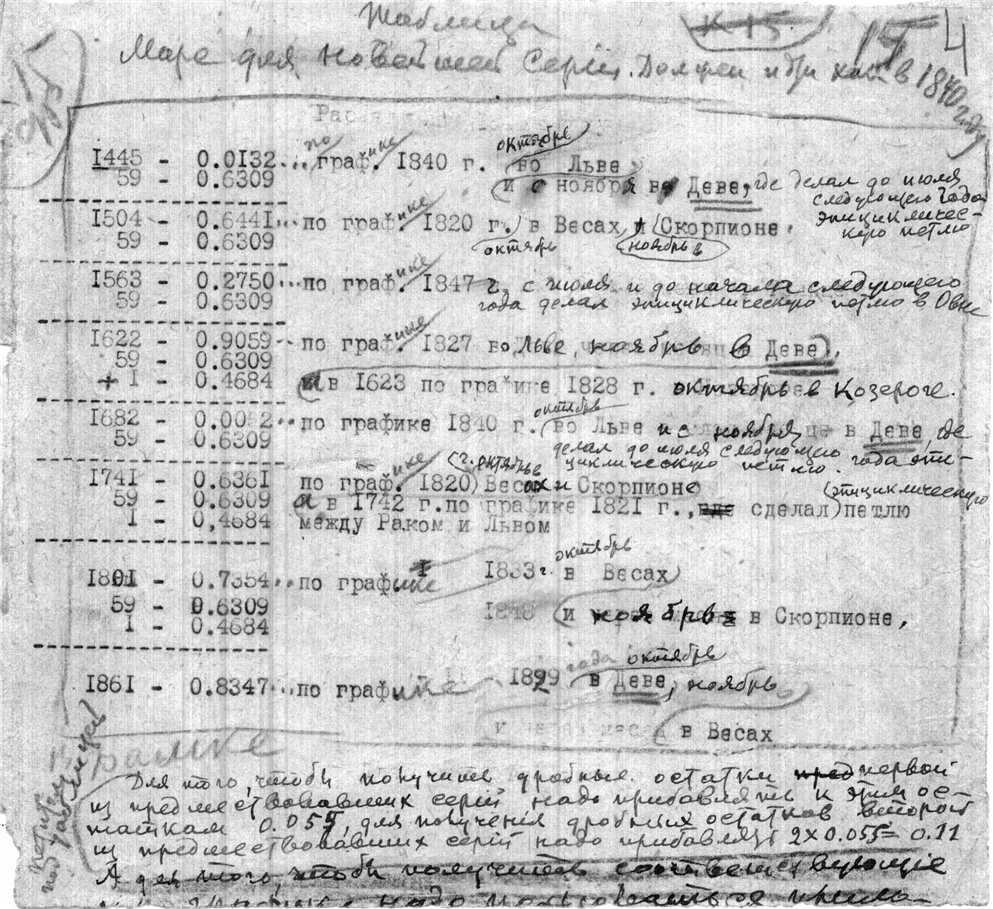 Таблица
К 15. 14
Марс для новейшей Серіи. 1840 году
1445 - 0.0132... по графике 1840 г. октябрь во Льве
59 - 0.6309 и с ноября в Деве, где делал до июля
следующего года
эпицикличес-
кую петлю
1504 - 0.6441... по графике 1820 г. в Весах и Скорпионе.
59 - 0.6309 октябрь ноябрь в
1563 - 0.2750... по графике 1847 г. с июля и до начала следующего
59 - 0.6309 года делал эпициклическую петлю в Овне
1622 - 0.9059... по графике 1827 во Льве, ноябрь в Деве,
59 - 0.6309
+ 1 - 0.4684 а в 1623 по графике 1828 г. октябрь в Козероге.
1682 - 0.0052... по графике 1840 г. октябрь во Льве и с ноября в Деве, где
59 - 0.6309 делал до июля следующего года эпи-
циклическую петлю.
1741 - 0.6361 по графике 1820 г. октябрь Весах и Скорпионе
59 - 0.6309 а в 1742 г. по графике 1821 г., где сделал (эпициклическую) петлю
1 - 0,4684 между Раком и Львом
1801 - 0.7354... по графике 1833 г. октябрь в Весах
59 - 0.6309 1848 и ноябрь в Скорпионе,
1 - 0.4684
1861 - 0.8347... по графике 1829 года октябрь в Деве, ноябрь
в Весах
в рамке
петитом под таблицей
Для того, чтобы получить дробные остатки пред первой
из предшествовавших серій надо прибавлять к этим ос-
таткам 0.055, для полученія дробных остатков второй
из предшествовавших серій надо прибавлять 2х0.055= 0.11
А для того, чтобы получить соответствующіе
надо пользоваться